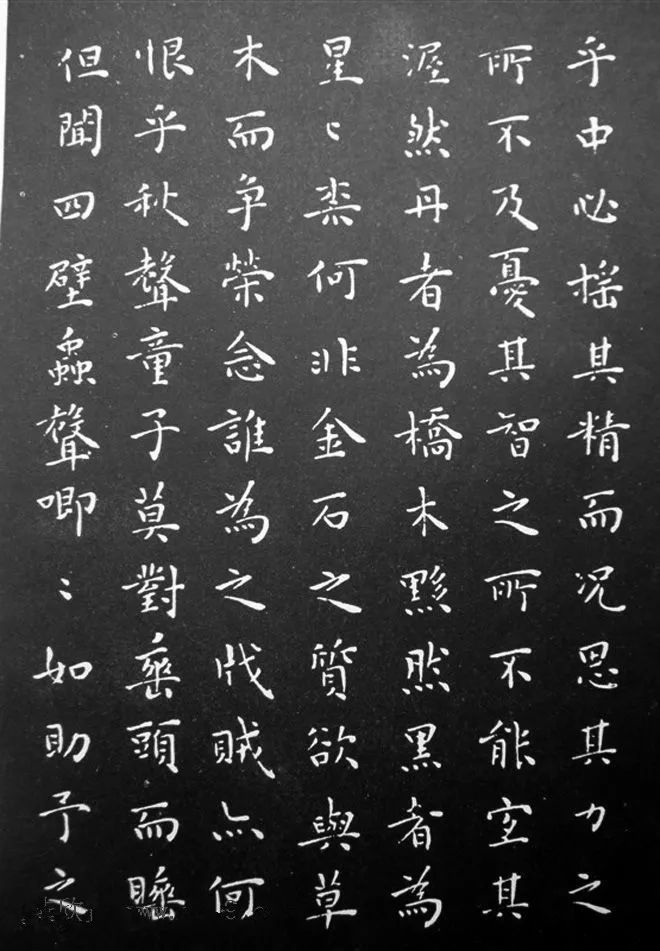 乎中必摇其精而况思其力之
所不及憂其智之所不能宜其
渥然丹者為橋木黟然黑者為
星〻柰何非金石之質欲與草
木而争榮念誰為之戕賊亦何
恨乎秋聲童子莫對垂頭而睡
但聞四壁蟲聲唧〻如助予之